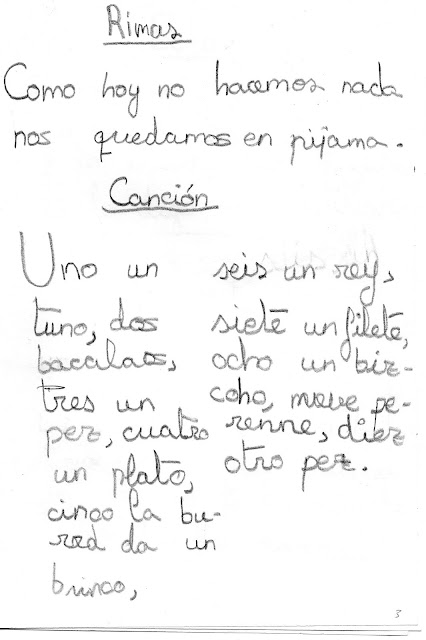 Rimas
Como hoy no hacemos nada
nos quedamos en pijama.
Canción
Uno un
tuno, dos
bacalaos,
tres un
pez, cuatro
un plato,
cinco la bu-
rra da un
brinco,
seis un rey,
siete un filete,
ocho un biz-
coho, nueve pe-
renne, diez
otro pez.
3